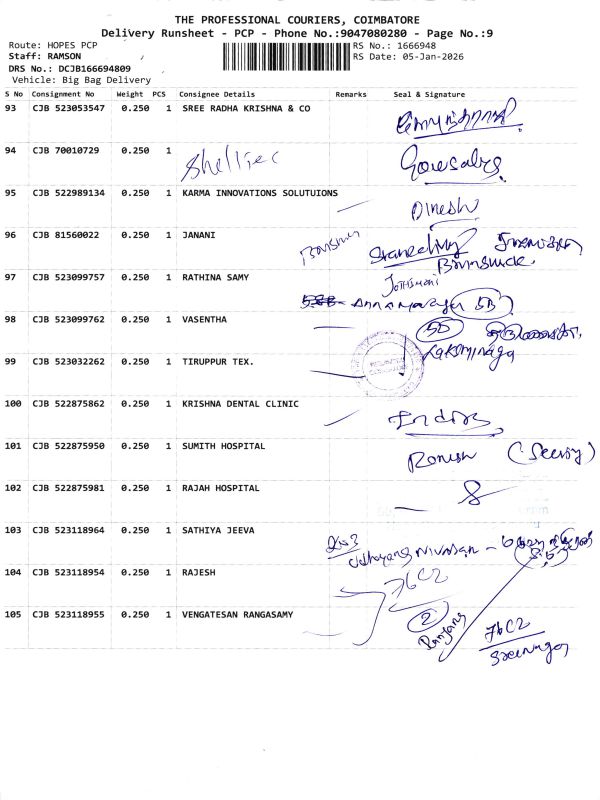 THE PROFESSIONAL COURIERS, COIMBATORE
Delivery Runsheet - PCP - Phone No.:9047080280 - Page No.:9
Route: HOPES PCP
RS No.: 1666948
Staff: RAMSON
RS Date: 05-Jan-2026
DRS No.: DCJB166694809
Vehicle: Big Bag Delivery
S No Consignment No Weight PCS Consignee Details Remarks Seal & Signature
93 CJB 523053547 0.250 1 SREE RADHA KRISHNA & CO
94 CJB 70010729 0.250 1 Gowsalya
95 CJB 522989134 0.250 1 KARMA INNOVATIONS SOLUTUIONS Dinesh
96 CJB 81560022 0.250 1 JANANI
97 CJB 523099757 0.250 1 RATHINA SAMY Jothimani
5B
98 CJB 523099762 0.250 1 VASENTHA 5D
99 CJB 523032262 0.250 1 TIRUPPUR TEX.
100 CJB 522875862 0.250 1 KRISHNA DENTAL CLINIC
101 CJB 522875950 0.250 1 SUMITH HOSPITAL
102 CJB 522875981 0.250 1 RAJAH HOSPITAL
103 CJB 523118964 0.250 1 SATHIYA JEEVA
104 CJB 523118954 0.250 1 RAJESH 76C2
105 CJB 523118955 0.250 1 VENGATESAN RANGASAMY 2 76C2